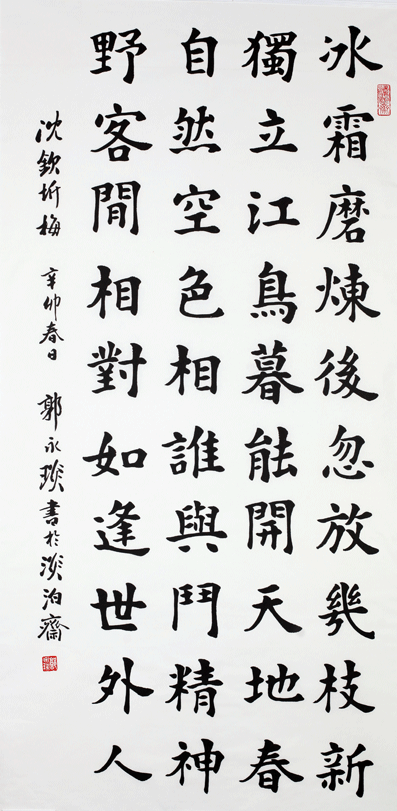 冰霜磨煉後忽放幾枝新
獨立江鳥暮能開天地春
自然空色相誰與鬥精神
野客閒相對如逢世外人
沈欽圻梅 辛卯春日 郭永琰書於淡泊齋